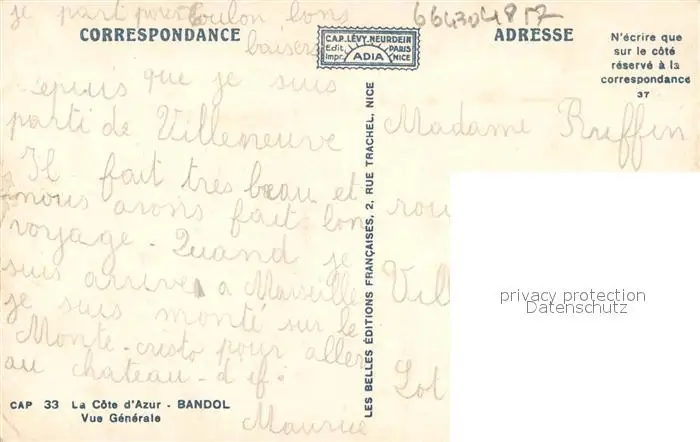 je part pour Toulon bons
baisers
664304817
CORRESPONDANCE
C.A.P. LÉVY-NEURDEIN
Edit. PARIS
Impr. ADIA NICE
ADRESSE
N'écrire que
sur le côté
réservé à la
correspondance
37
depuis que je suis
parti de Villeneuve
Il fait tres beau et
nous avons fait bon
voyage. Quand je
suis arrive a Marseille
je suis monté sur le
Monte-cristo pour aller
au chateau-d if.
Maurice
CAP 33 La Côte d'Azur - BANDOL
Vue Générale
LES BELLES ÉDITIONS FRANÇAISES, 2, RUE TRACHEL, NICE
Madame Ruffin
rou
Vill
Lot
privacy protection
Datenschutz